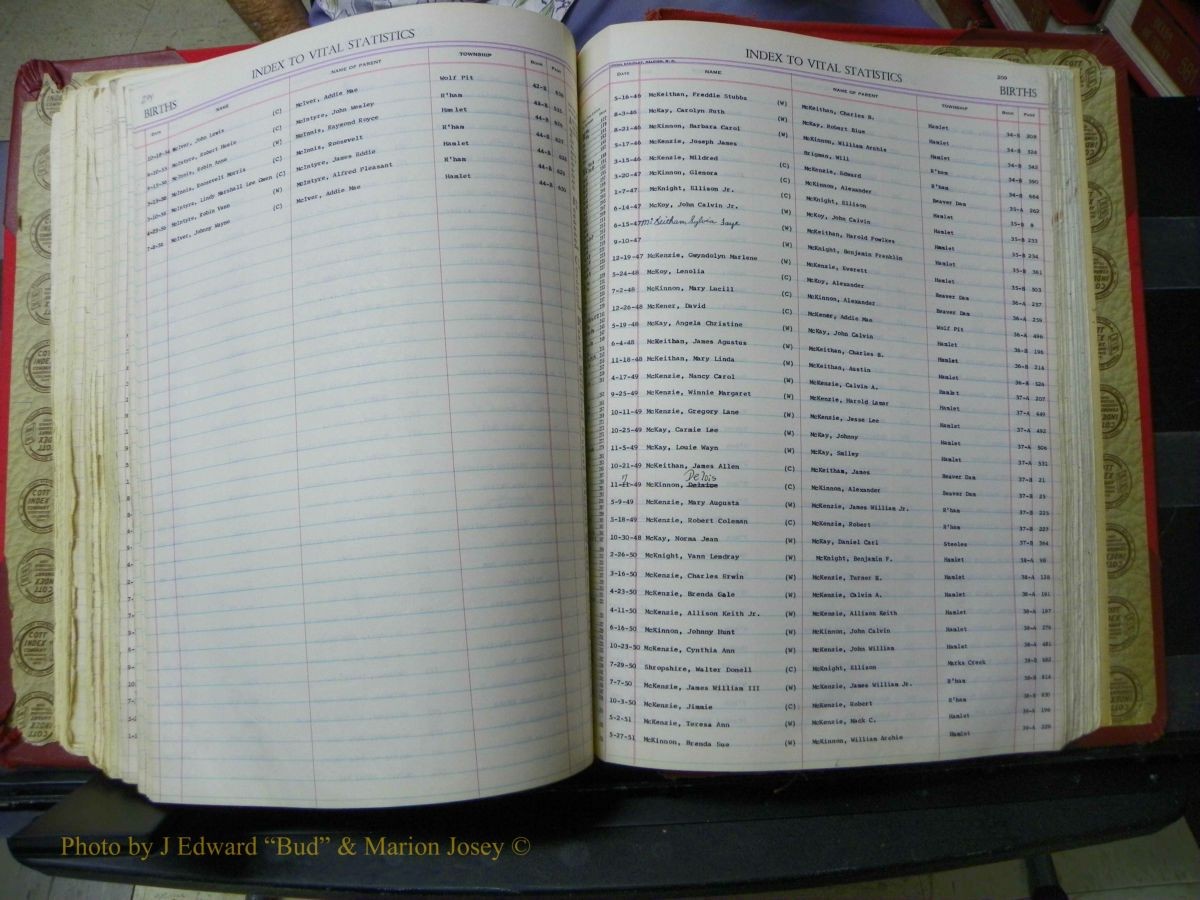 294
INDEX TO VITAL STATISTICS
BIRTHS
DATE NAME NAME OF PARENT TOWNSHIP BOOK PAGE
12-18-54 McIver, John Lewis (C) McIver, Addie Mae Wolf Pit 42-B
McIntyre, Robert (C) McIntyre, John Wesley R'ham
McInnis, Robin Anne (W) McInnis, Raymond Royce Hamlet
McInnis, Roosevelt Morris (C) McInnis, Roosevelt R'ham 44-B
McIntyre, Lindy Marshall Lee Owen (C) McIntyre, James Eddie Hamlet 44-B
McIntyre, Robin Vann (W) McIntyre, Alfred Pleasant R'ham 44-B
McIver, Johnny Wayne (C) McIver, Addie Mae Hamlet 44-B
INDEX TO VITAL STATISTICS
209
BIRTHS
DATE NAME NAME OF PARENT TOWNSHIP BOOK PAGE
5-16-46 McKeithan, Freddie Stubbs (W) McKeithan, Charles B. Hamlet 34-B 308
8-3-46 McKay, Carolyn Ruth (W) McKay, Robert Blue Hamlet 34-B
8-21-46 McKinnon, Barbara Carol (W) McKinnon, William Archie Hamlet 34-B
5-17-46 McKenzie, Joseph James Brigman, Will R'ham 34-B
3-15-46 McKenzie, Mildred (C) McKenzie, Edward R'ham 34-B 664
3-20-47 McKinnon, Glenora (C) McKinnon, Alexander Beaver Dam 35-A 262
1-7-47 McKnight, Ellison Jr. (C) McKnight, Ellison Hamlet 35-B 8
6-14-47 McKoy, John Calvin Jr. (W) McKoy, John Calvin Hamlet 35-B 233
6-15-47 McKeitham Sylvia Faye (W) McKeithan, Harold Fowlkes Hamlet 35-B 234
9-10-47 (W) McKnight, Benjamin Franklin Hamlet 35-B 361
12-19-47 McKenzie, Gwyndolyn Marlene (W) McKenzie, Everett Hamlet 35-B 503
5-24-48 McKoy, Lenolia (C) McKoy, Alexander Beaver Dam 36-A 237
7-2-48 McKinnon, Mary Lucill (C) McKinnon, Alexander Beaver Dam 36-A 259
12-26-48 McKener, David (C) McKener, Addie Mae Wolf Pit 36-A 496
5-19-48 McKay, Angela Christine (W) McKay, John Calvin Hamlet 36-B 196
6-4-48 McKeithan, James Agustus (W) McKeithan, Charles B. Hamlet 36-B 214
11-18-48 McKeithan, Mary Linda (W) McKeithan, Austin Hamlet 36-B 524
4-17-49 McKenzie, Nancy Carol (W) McKenzie, Calvin A. Hamlet 37-A 207
9-25-49 McKenzie, Winnie Margaret (W) McKenzie, Harold Lamar Hamlet 37-A 449
10-11-49 McKenzie, Gregory Lane (W) McKenzie, Jesse Lee Hamlet 37-A 492
10-25-49 McKay, Carmie Lee (W) McKay, Johnny Hamlet 37-A 506
11-5-49 McKay, Louie Wayn (W) McKay, Smiley Hamlet 37-A 531
10-21-49 McKeithan, James Allen (C) McKeitham, James Beaver Dam 37-B 21
7 Delois
11-11-49 McKinnon, Deloise (C) McKinnon, Alexander Beaver Dam 37-B 25
5-9-49 McKenzie, Mary Augusta (W) McKenzie, James William Jr. R'ham 37-B 225
3-18-49 McKenzie, Robert Coleman (C) McKenzie, Robert R'ham 37-B 227
10-30-48 McKay, Norma Jean (W) McKay, Daniel Carl Steeles 37-B 364
2-26-50 McKnight, Vann Lendray (W) McKnight, Benjamin F. Hamlet 38-A 98
3-16-50 McKenzie, Charles Erwin (W) McKenzie, Turner E. Hamlet 38-A 128
4-23-50 McKenzie, Brenda Gale (W) McKenzie, Calvin A. Hamlet 38-A 181
4-11-50 McKenzie, Allison Keith Jr. (W) McKenzie, Allison Keith Hamlet 38-A 187
6-16-50 McKinnon, Johnny Hunt (W) McKinnon, John Calvin Hamlet 38-A 276
10-23-50 McKenzie, Cynthia Ann (W) McKenzie, John William Hamlet 38-A 481
7-29-50 Shropshire, Walter Donell (C) McKnight, Ellison Marks Creek 38-B
7-7-50 McKenzie, James William III (W) McKenzie, James William Jr. R'ham 38-B
10-3-50 McKenzie, Jimmie (C) McKenzie, Robert R'ham 38-B
5-2-51 McKenzie, Teresa Ann (W) McKenzie, Mack C. Hamlet 39-A 196
5-27-51 McKinnon, Brenda Sue (W) McKinnon, William Archie Hamlet 39-A
COTT INDEX COMPANY
Photo by J Edward “Bud” & Marion Josey ©